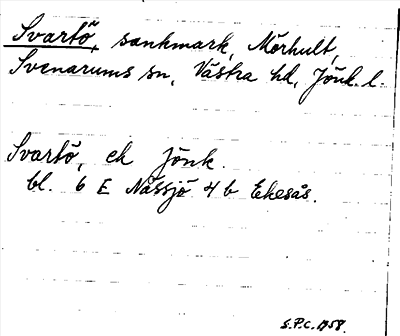 Svartö, sankmark, Mörhult,
Svenarums sn, Västra hd, Jönk. l.
Svartö, ek Jönk.
bl. 6 E Nässjö 4 b Ekesås.
S.P.C. 1958.